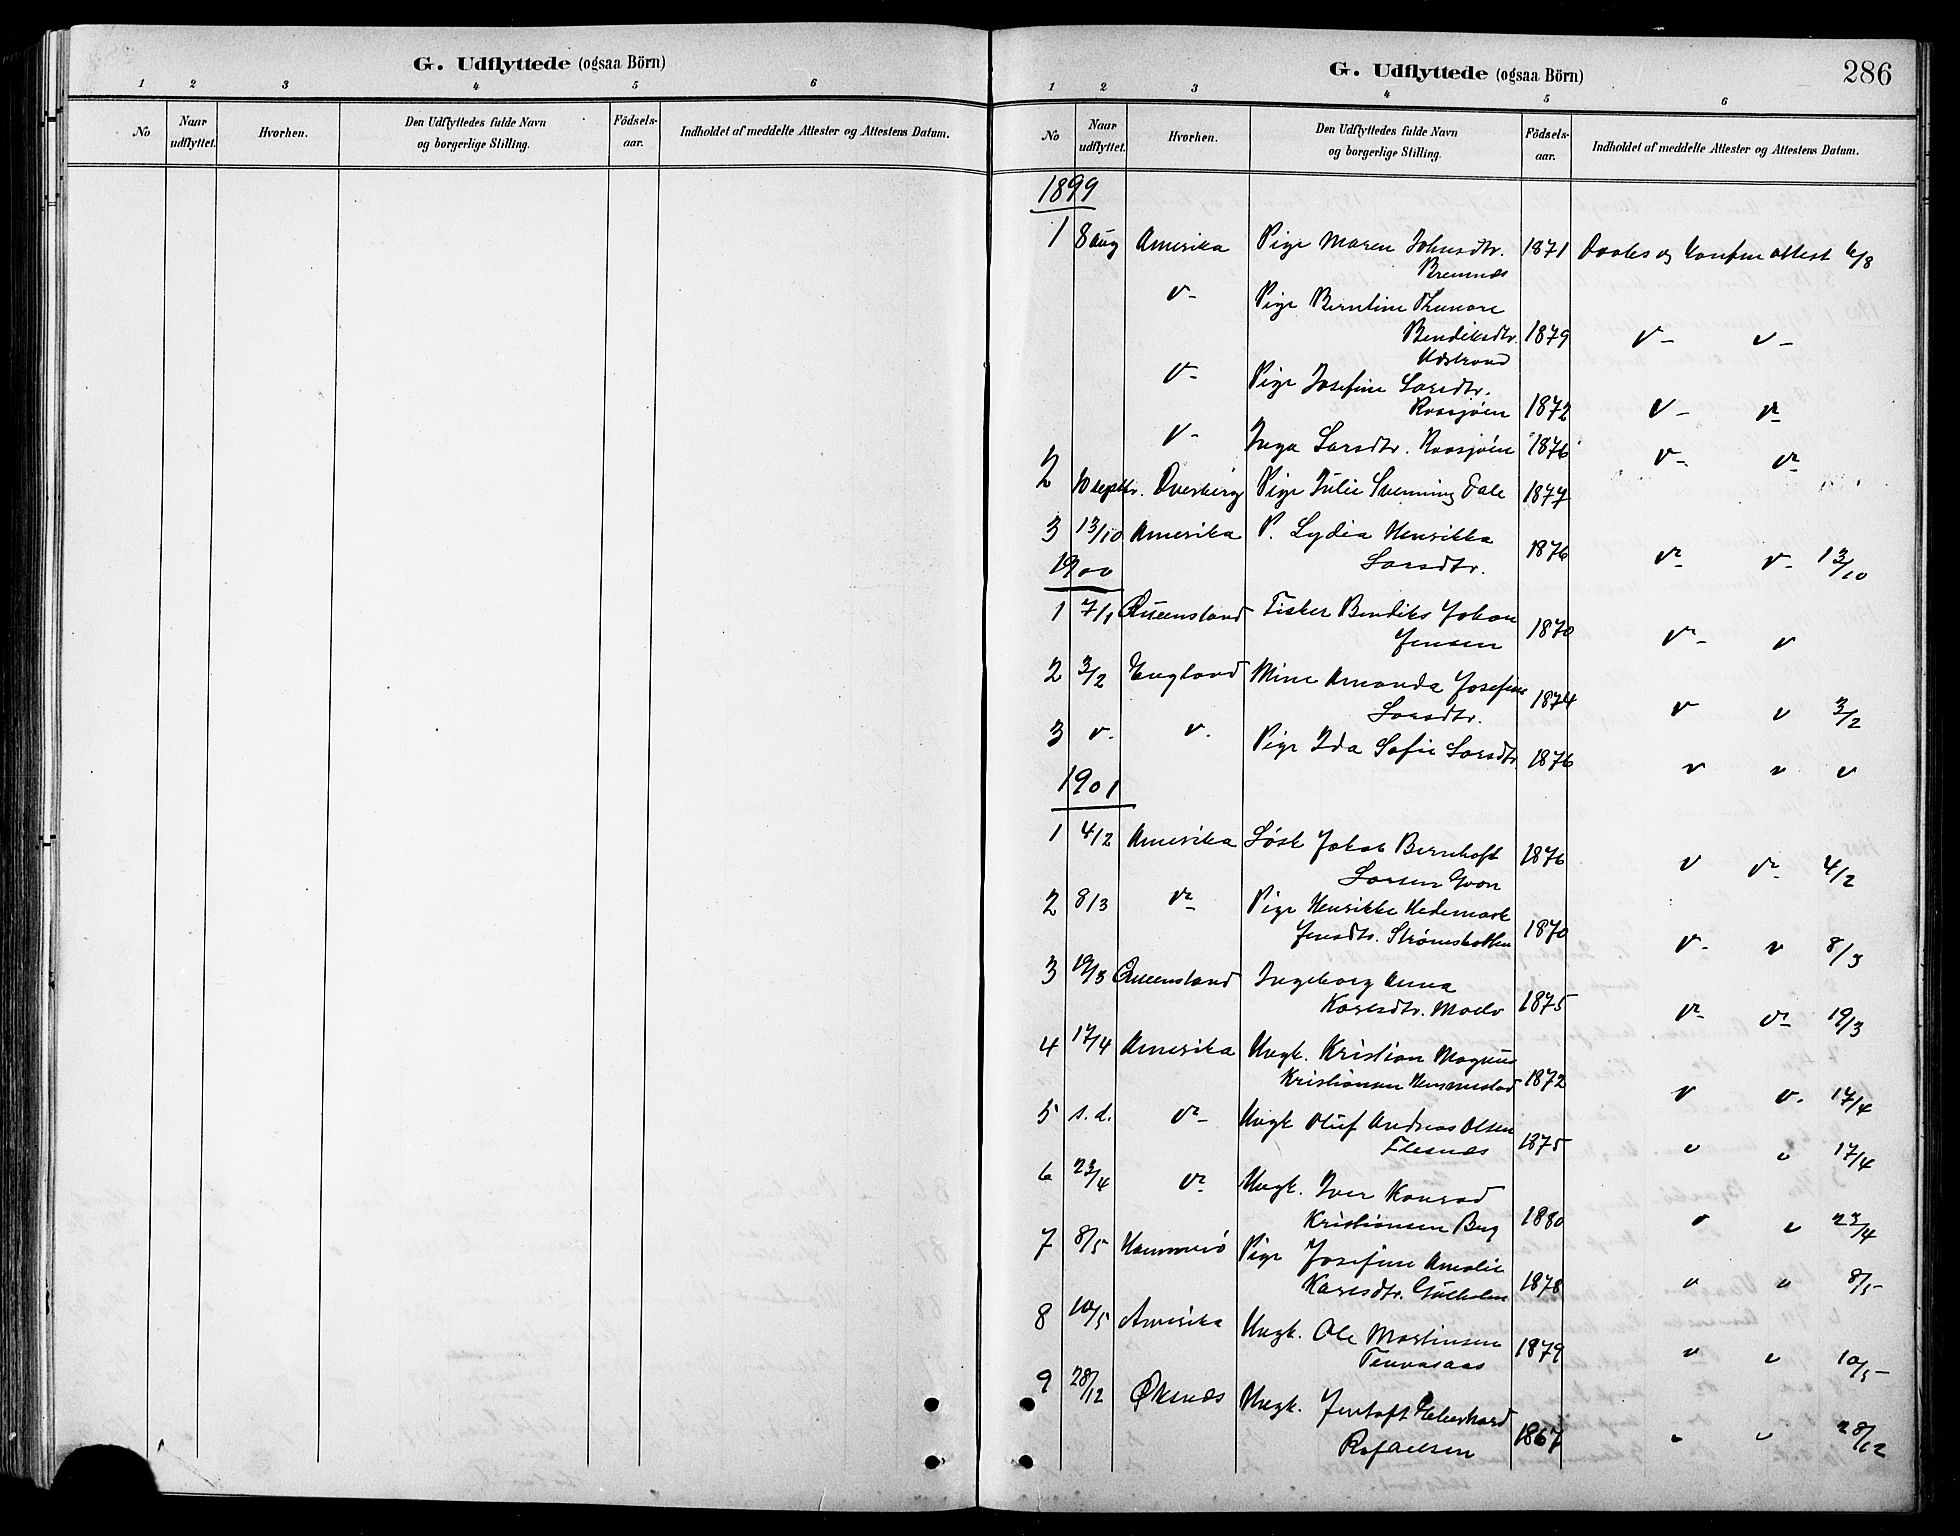 G. Udflyttede (ogsaa Börn)
1 2 3 4 5 6
No Naar udflyttet. Hvorhen. Den Udflyttedes fulde Navn og borgerlige Stilling. Födsels-aar. Indholdet af meddelte Attester og Attestens Datum.
G. Udflyttede (ogsaa Börn) 286
1 2 3 4 5 6
No Naar udflyttet. Hvorhen. Den Udflyttedes fulde Navn og borgerlige Stilling. Födsels-aar. Indholdet af meddelte Attester og Attestens Datum.
1899
1 8 aug Amerika Pige Maren Johnsdtr. 1871 Daabs og Konfm attest 6/8
Bremnes
v- Pige Berntine
Bendiksdtr. 1879 v- v-
Udstrand
v- Pige Josefine Larsdtr.
Roosjøen 1872 v- v-
v- Inga Larsdtr. Roosjøen 1876 v- v-
2 10 septbr. Dverberg Pige Julie Svenning Dale 1877
3 13/10 Amerika P. Lydia Henrikka
Larsdtr. 1876 v- v- 13/10
1900
1 7/1 Queensland Fisker Bendiks Johan
Jensen 1870 v- v
2 3/2 England Mine Amanda Josefine
Larsdtr. 1874 v v 3/2
3 v. v. Pige Ida Sofie Larsdtr 1876 v v v
1901
1 4/2 Amerika Løsk Jakob Bernhoft 1876 v v- 4/2
Larsen
2 8/3 v- Pige Henrikke Hedemark
Jensdtr. Strømsbotten 1870 v- v 8/3
3 19/3 Queensland Ingeborg Anna
Karlsdtr. Maelv 1875 v- v- 19/3
4 17/4 Amerika Ungk. Kristian Magnus
Kristiansen Hemmestad 1872 v v. 17/4
5 s.d. v- Ungk Oluf Andreas Olsen
Flesnes 1875 v v 17/4
6 23/4 v- Ungk. Iver Konrad
Kristiansen Berg 1880 v v 23/4
7 8/5 Hammerø Pige Josefine Amalie
Karlsdtr. Gulholm 1878 v v 8/5
8 10/5 Amerika Ungk. Ole Martinsen
Tennasaas 1879 v v 10/5
9 28/12 Øksnes Ungk. Jentoft Eberhard
Rafaelsen 1867 v v 28/12